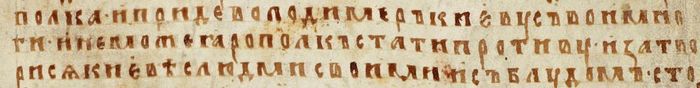 полка · и приде володимеръ киеву съ вои мно
ги · и не може ꙗрополкъ стати противу · и затво
рисѧ киевѣ с людми своими · и съ блудомъ · сто